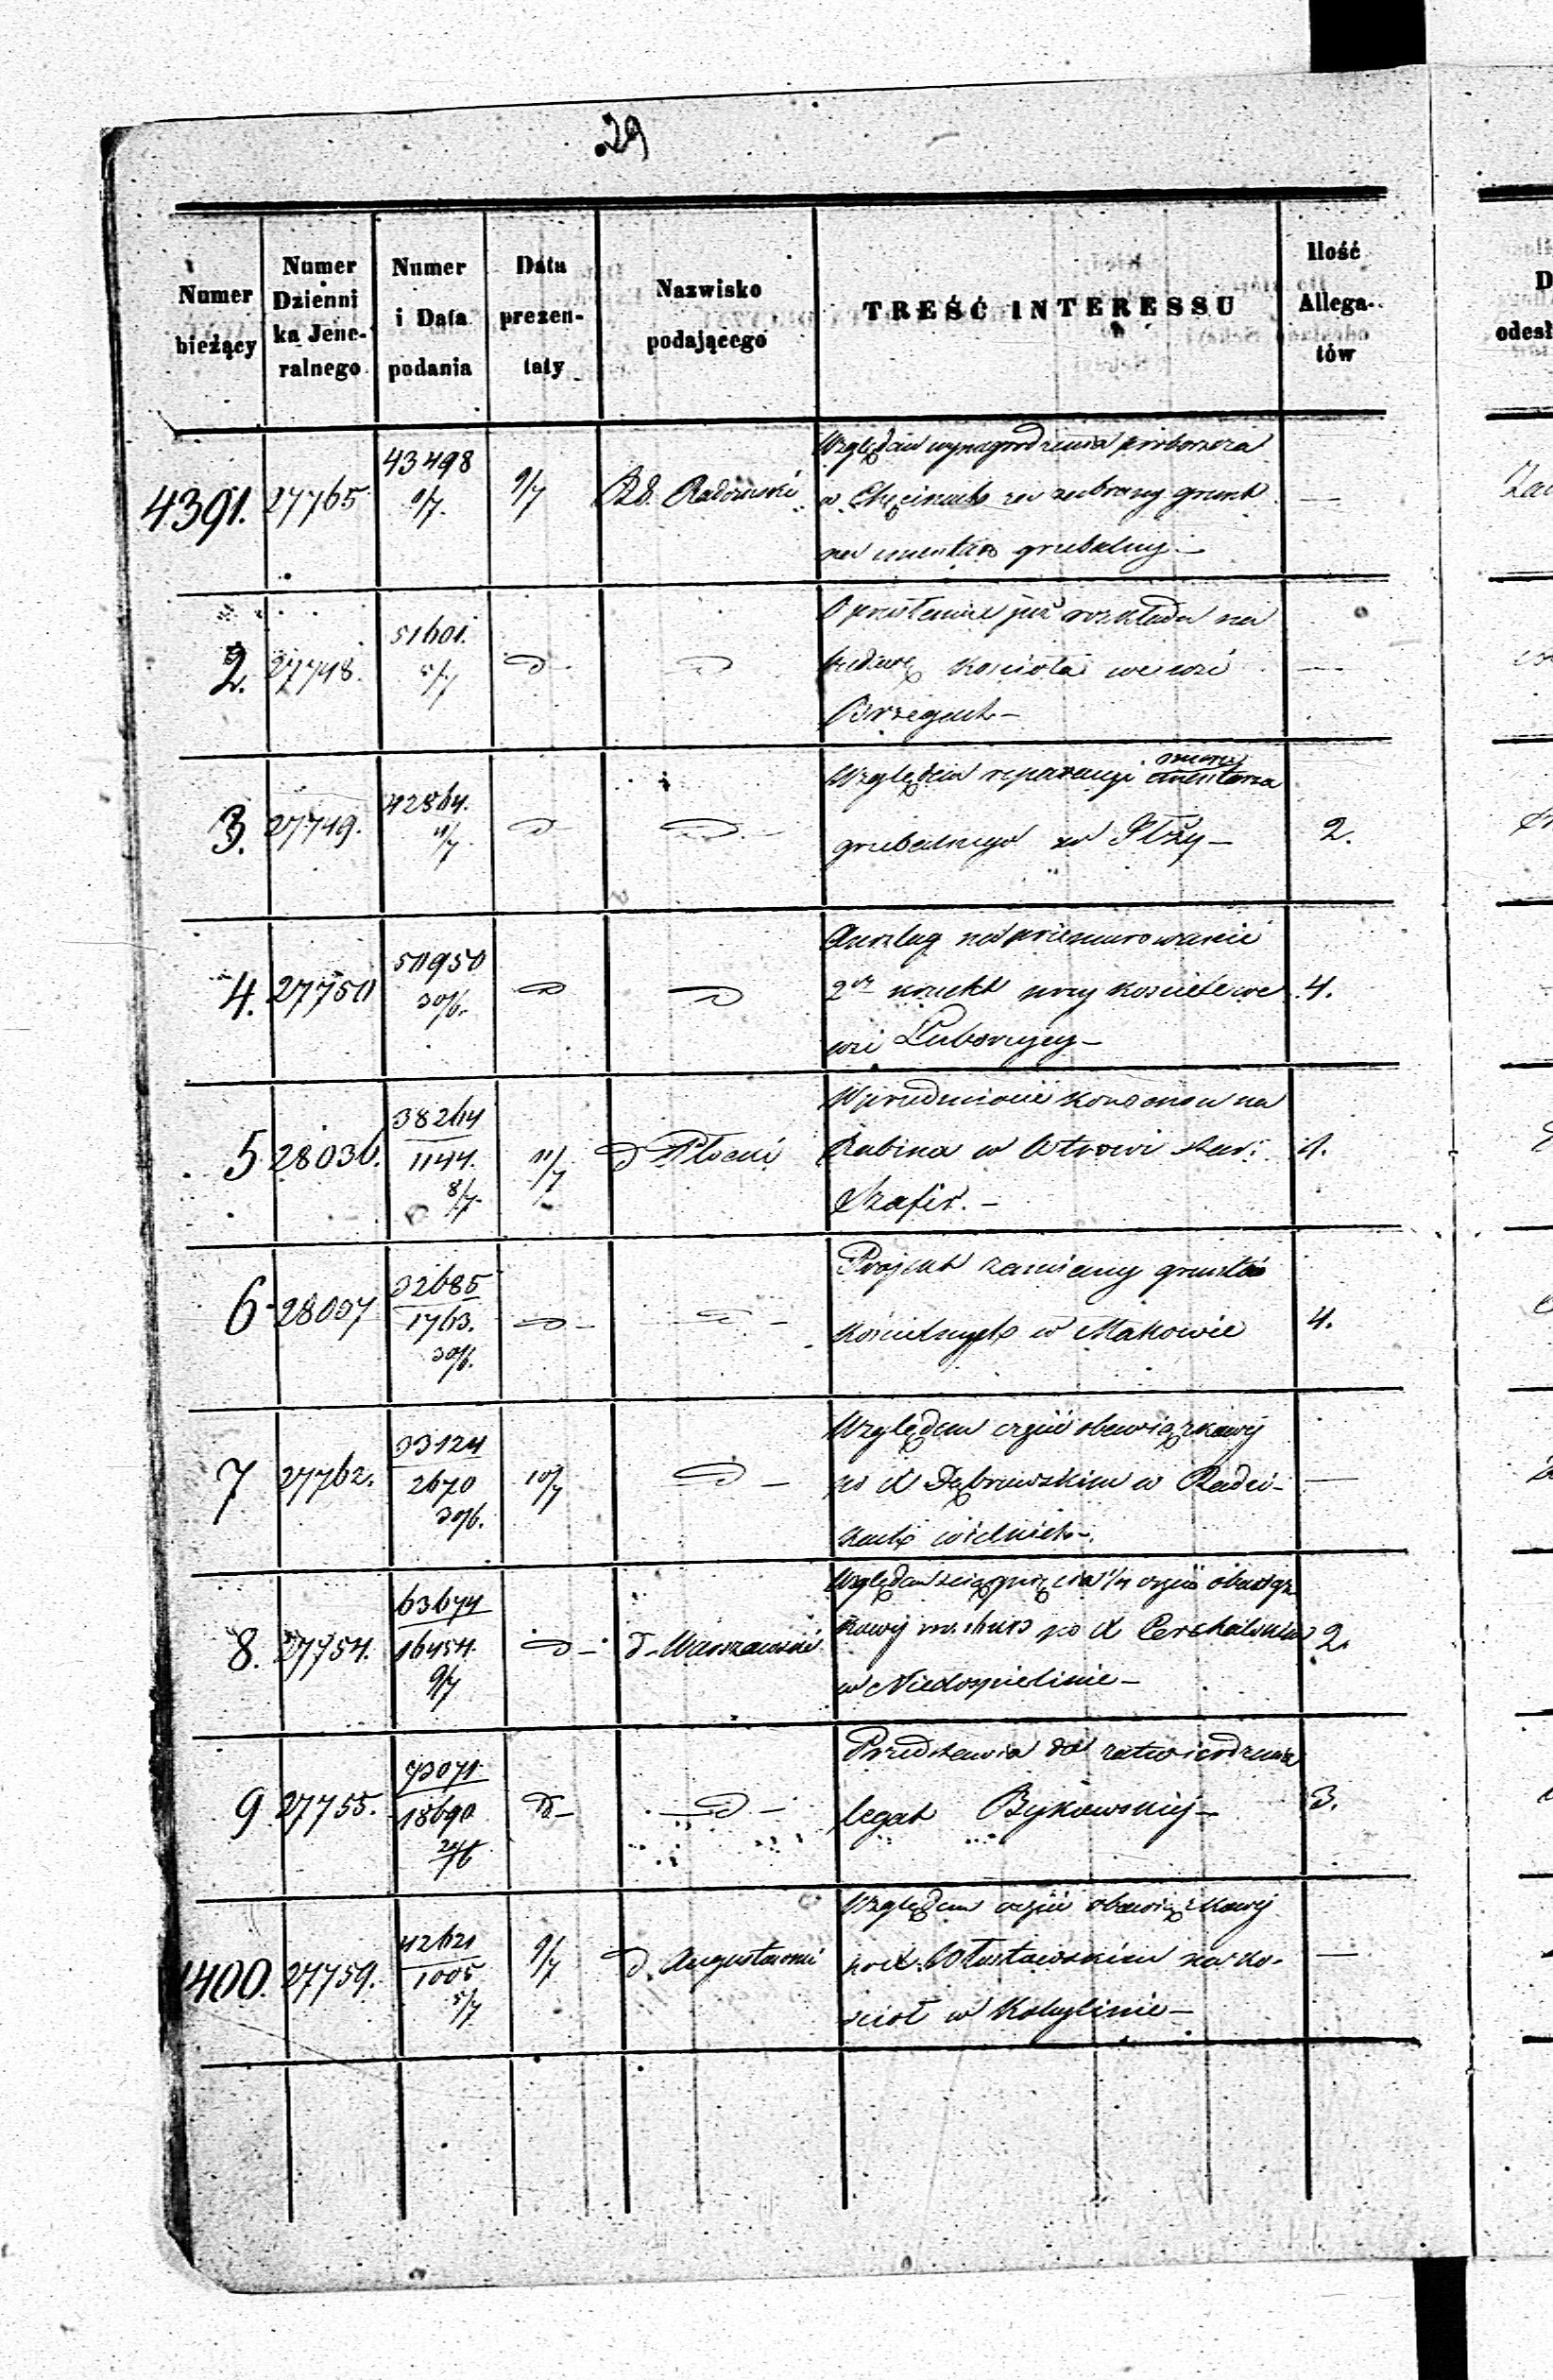 29
Numer bieżący
Numer Dzienni ka Jene- ralnego
Numer i Data podania
Data prezen- taty
Nazwisko podającego
TREŚĆ INTERESSU
Ilość Allega- tów
4391. 27765 43498 9/7. 9/7 Rzd. Radomski
Względem wynagrodzenia proboszcza
w Chęcinach za zabrany grunt
na cmentarz grzebalny –
2. 27748. 51601. 5/7 d d
O przesłanie już rozkładu na
kościoła we wsi
Brzegach –
3. 27749. 42864. 11/7 d d
Względem reparacyi cmentarza
grzebalnego w Iłży – 2.
4. 27750 50950 30/6. d d
Anszlag na przemurowanie
2ch przy kościele we 4.
wsi Luborzycy –
5. 28036. 38264 1144. 8/7 11/7 d Płocki
na
Rabina w Ostrowi star: 1.
Szafir. –
6. 28037 32685 1763. 30/6. d – d –
Projekt zamiany gruntów
kościelnych w Makowie 4.
7 27762. 33124 2670 30/6. 10/7 d –
Względem części obowiązkowej
po X Dąbrowskim w Radzi-
kach wielkich –
8. 27754. 63674 16454. 9/7 d – d – Warszawski
Względem ściągnięcia 1/4 części obowiąz
kowej po X 2.
w Niedośpielinie –
9 27755. 73071. 18690 24/6 d – d –
Przedstawia do zatwierdzenia
legat Bykowskiej – 3.
400. 27759. 42621 1005 5/7 9/7 d. Augustowski
Względem części obowiązkowej
po X. na ko-
ściół w Kobylinie –